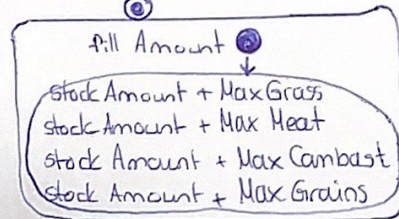 fill Amount
stock Amount + Max Grass
stock Amount + Max Meat
stock Amount + Max Cambast
stock Amount + Max Grains